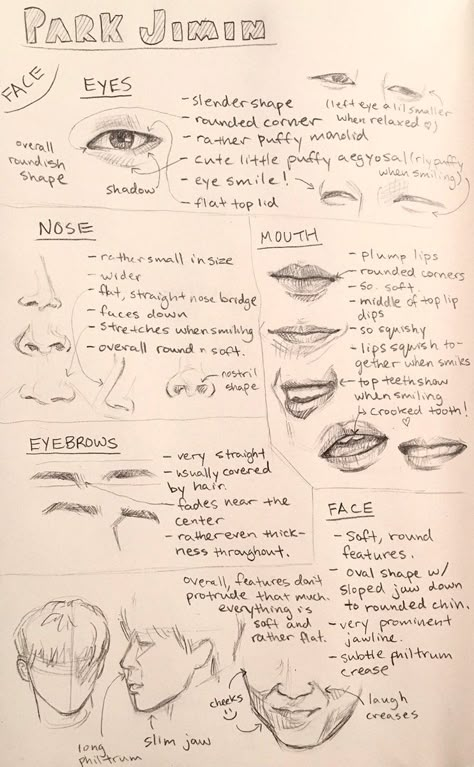 PARK JIMIN
FACE
EYES
- slender shape
- rounded corner
- rather puffy monolid
- cute little puffy aegyosal (rly puffy
when smiling)
- eye smile!
- flat top lid
(left eye a lil smaller
when relaxed ♡)
overall
roundish
shape
shadow
NOSE
- rather small in size
- wider
- flat, straight nose bridge
- faces down
- stretches when smiling
- overall round n soft.
nostril
shape
MOUTH
- plump lips
- rounded corners
- so soft.
- middle of top lip
dips
- so squishy
- lips squish to-
gether when smiles
- top teeth show
when smiling
↳ crooked tooth!
♡
EYEBROWS
- very straight
- usually covered
by hair.
- fades near the
center
- rather even thick-
ness throughout.
FACE
- soft, round
features.
- oval shape w/
sloped jaw down
to rounded chin.
- very prominent
jawline.
- subtle philtrum
crease
overall, features don't
protrude that much.
everything is
soft and
rather flat.
long
philtrum
slim jaw
cheeks
laugh
creases